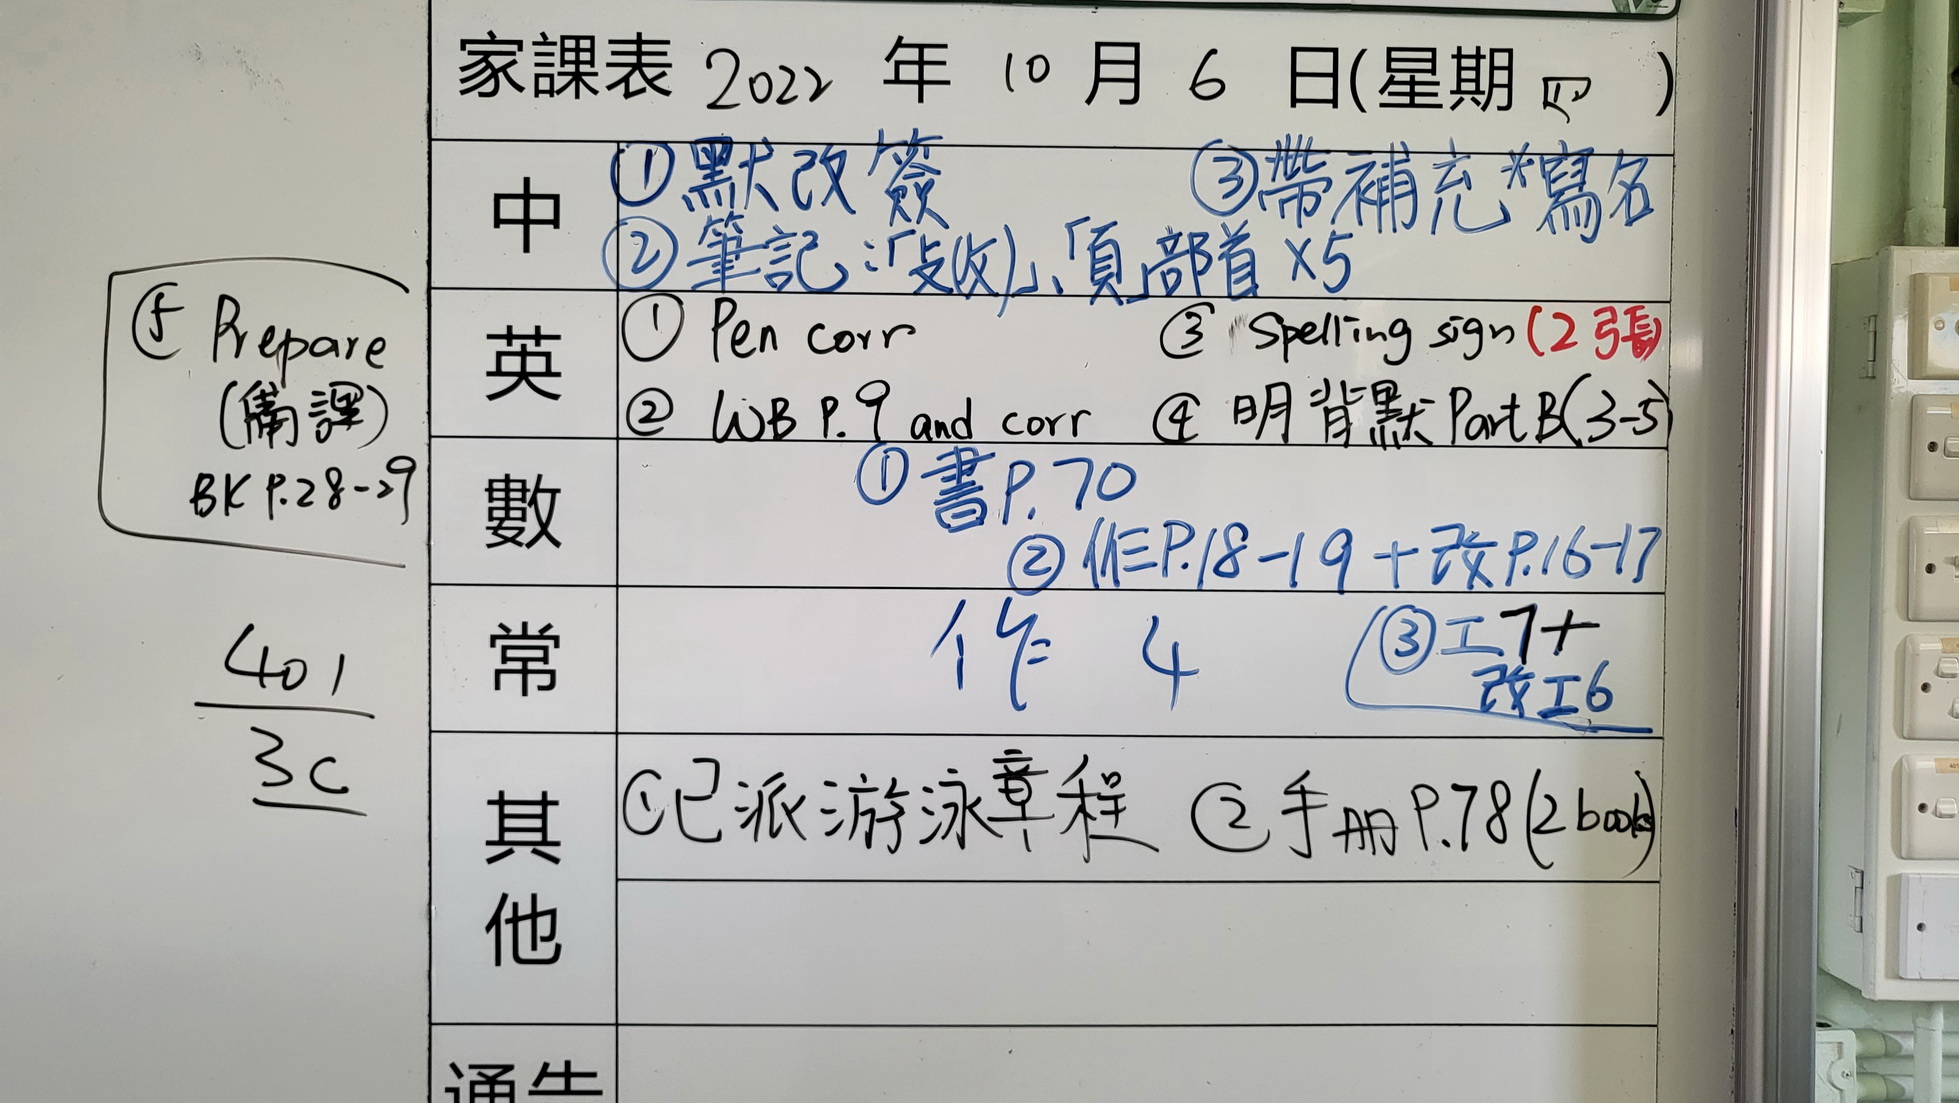 家課表 2022 年 10 月 6 日(星期 四 )
中
①默改簽 ③帶補充*寫名
②筆記:「攴(攵)」、「頁」部首 x5
英
① Pen corr ③ Spelling sign (2張)
② WB P.9 and corr ④ 明背默 Part B(3-5)
⑤ Prepare
(備課)
BK P.28-29
數
①書P.70
②作P.18-19 + 改P.16-17
③工7+
改工6
常
作 4
401
3C
其他
①已派游泳章程 ②手冊P.78(2 books)
通告